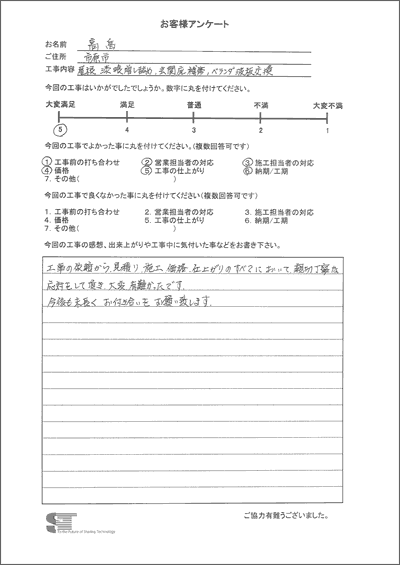 お客様アンケート
お名前 高 島
ご住所 市原市
工事内容 屋根 漆喰 詰め, 玄関庇補修, ベランダ波板交換
今回の工事はいかがでしたでしょうか。数字に丸を付けてください。
大変満足 満足 普通 不満 大変不満
5 4 3 2 1
今回の工事でよかった事に丸を付けてください。(複数回答可です)
1. 工事前の打ち合わせ 2. 営業担当者の対応 3. 施工担当者の対応
4. 価格 5. 工事の仕上がり 6. 納期/工期
7. その他( )
今回の工事で良くなかった事に丸を付けてください(複数回答可です)
1. 工事前の打ち合わせ 2. 営業担当者の対応 3. 施工担当者の対応
4. 価格 5. 工事の仕上がり 6. 納期/工期
7. その他( )
今回の工事の感想、出来上がりや工事中に気付いた事などをお書き下さい。
工事の 段階から 見積り 施工 価格 仕上がりのすべてにおいて、親切丁寧な
応対をして頂き、大変有難かったです.
今後も末長く お付き合いを お願い致します.
ST
To the Future of Starbay Technology
ご協力有難うございました。